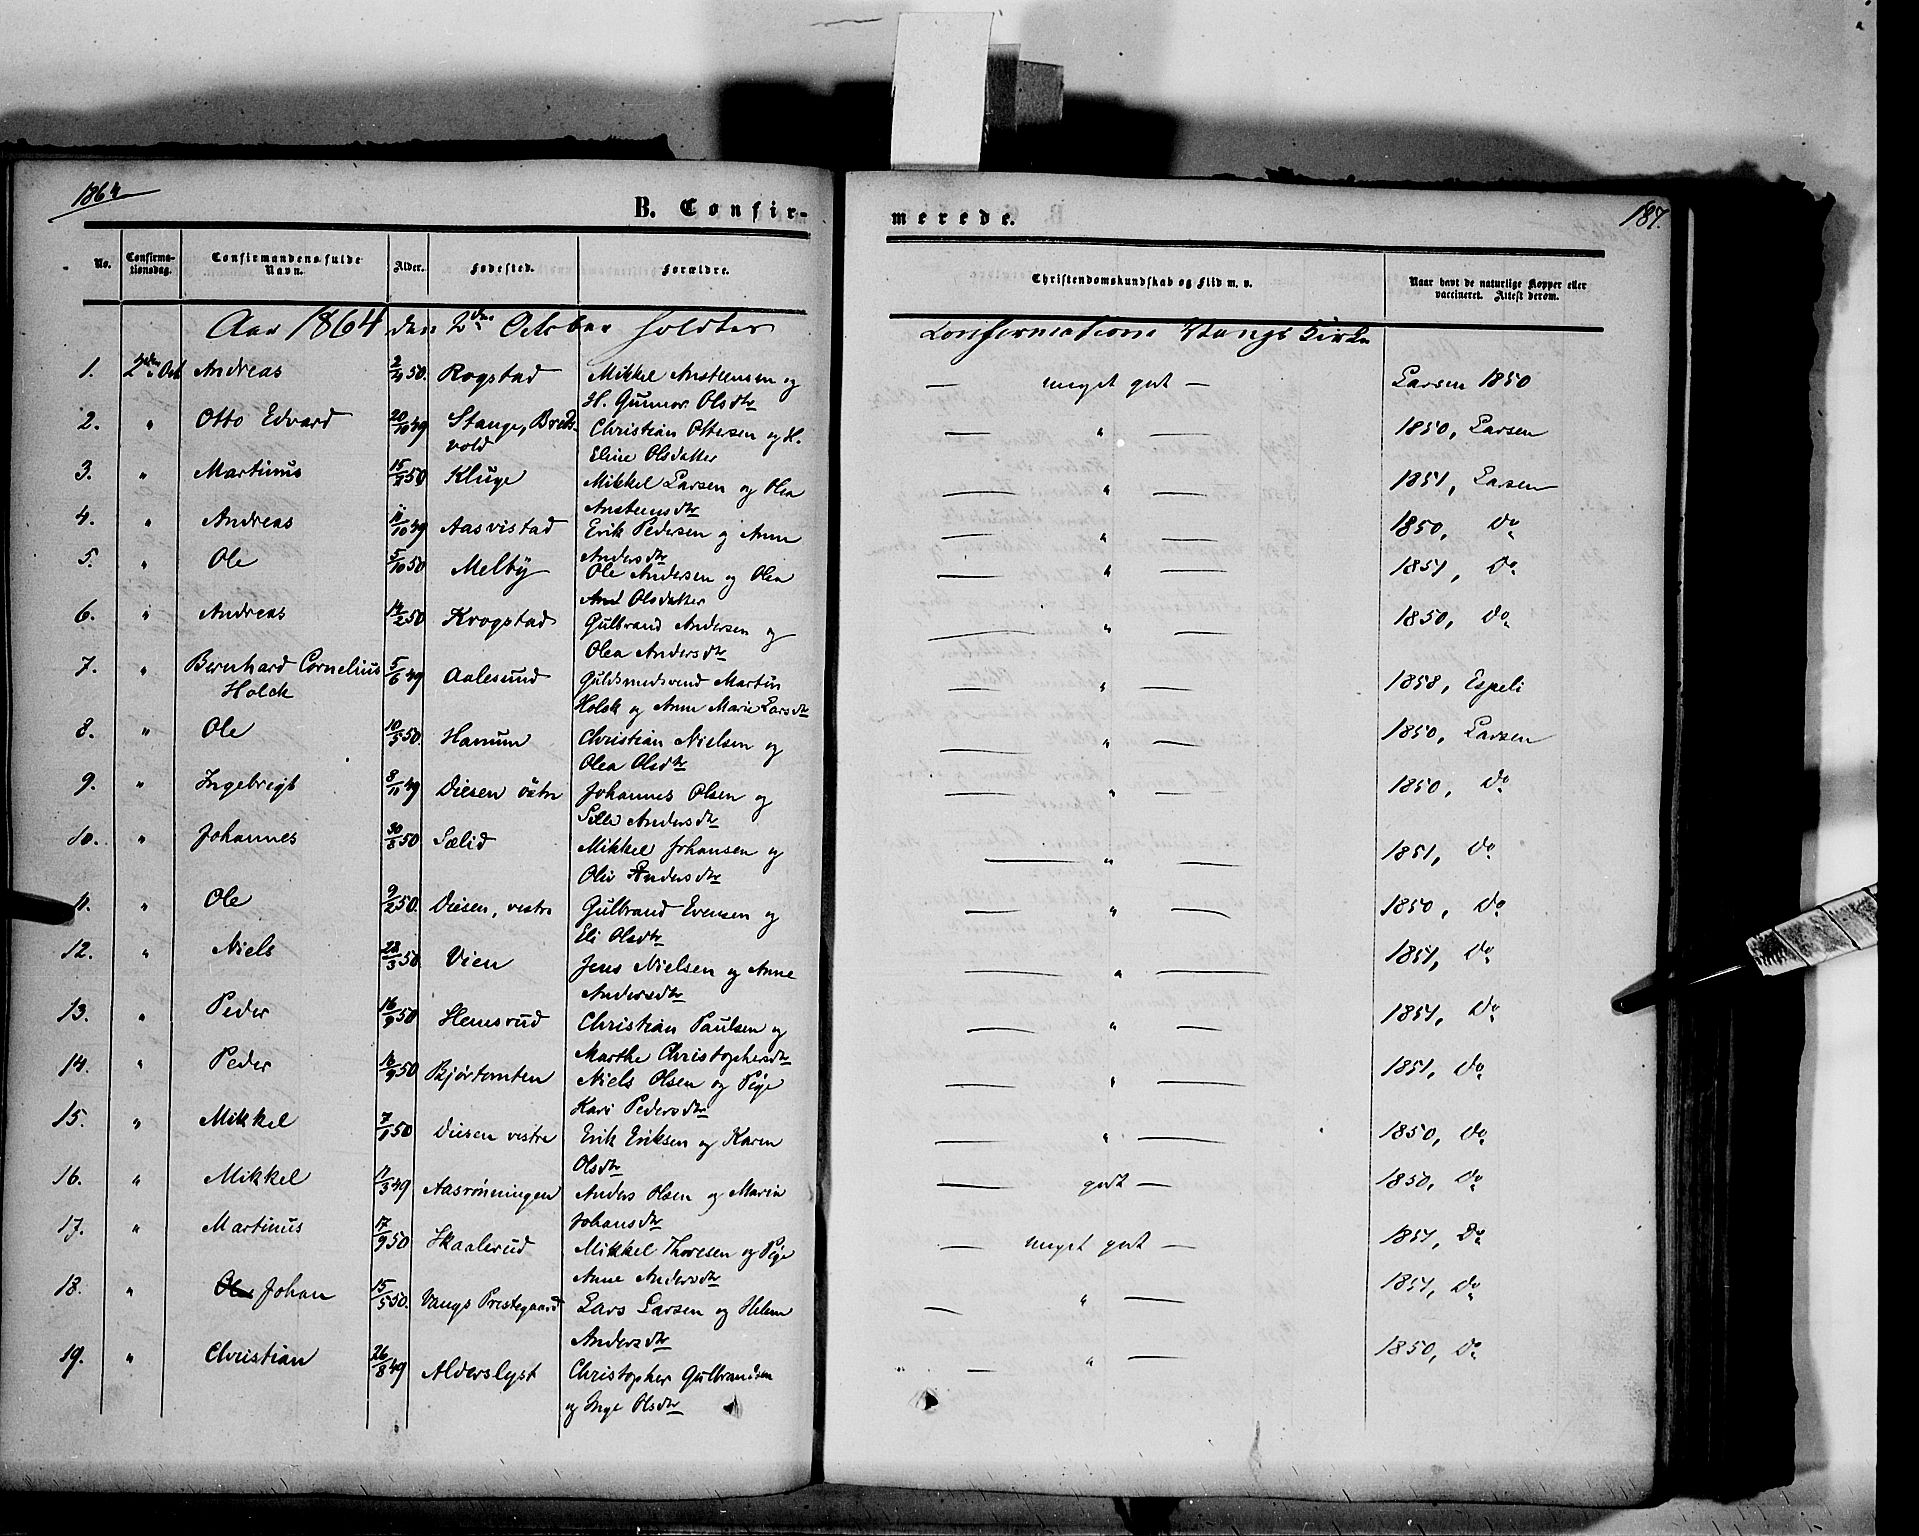 1864
B. Confir-
merede.
187.
No.
Confirma-
tionsdag.
Confirmandens fulde
Navn.
Alder.
Fødested.
Forældre.
Christendomskundskab og Flid m. v.
Naar havt de naturlige Kopper eller
vaccineret. Attest derom.
Aar 1864 den 2den October holdtes Confirmation i Vangs Kirke
1. 2den Oct Andreas 2/4 50. Rogstad Mikkel Anstensen og — meget godt — Larsen 1850
H. Gunnor Olsdtr
2. " Otto Edvard 20/10 49 Stange, Breds- Christian Ottersen og H. — " — 1850, Larsen
vold Eline Olsdatter
3. " Martinus 15/2 50 Kluge Mikkel Larsen og Olea — " — 1851, Larsen
Anstensdtr
4. " Andreas 11/10 49 Aasvistad Erik Pedersen og Anne — " — 1850, Do
Andersdtr
5. " Ole 5/10 50 Melby Ole Andersen og Olea — " — 1851, Do
Olsdatter
6. " Andreas 14/2 50 Krogstad Gulbrand Andersen og — " — 1850, Do
Olea Andersdtr
7. " Bernhard Cornelius 5/6 49 Aalesund Guldsmedsvend Martin — " — 1858, Espeli
Holck Holck og Anne Marie Larsdtr
8. " Ole 10/5 50. Hanum Christian Nielsen og — " — 1850, Larsen
Olea Olsdtr
9. " Ingebrigt 8/11 49 Diesen östre Johannes Olsen og — " — 1850, Do
Sille Andersdtr
10. " Johannes 30/8 50 Sælid Mikkel Johansen og — " — 1851, Do
Oliv Andersdtr
11. " Ole 9/2 50. Diesen, vestre Gulbrand Evensen og — " — 1850, Do
Eli Olsdtr
12. " Niels 28/3 50 Vien Jens Nielsen og Anne — " — 1851, Do
Andersdtr
13. " Peder 16/9 50 Hemsrud Christian Paulsen og — " — 1851, Do
Marthe Christophersdtr
14. " Peder 16/9 50 Bjørtomten Niels Olsen og Pige — " — 1851, Do
Kari Pedersdtr
15. " Mikkel 7/1 50 Diesen vestre Erik Eriksen og Karen — " — 1850, Do
Olsdtr
16. " Mikkel 11/3 49 Aasrönningen Anders Olsen og Maria — godt — 1850, Do
Johansdtr
17. " Martinus 17/9 50 Skaalerud Mikkel Thoresen og Pige — meget godt — 1851, Do
Anne Andersdtr
18. " Ole Johan 15/5 50. Vangs Prestegaard Lars Larsen og Helene — " — 1851, Do
Andersdtr
19. " Christian 26/8 49 Alderslyst Christopher Gulbrandsen — " — 1850, Do
og Inge Olsdtr